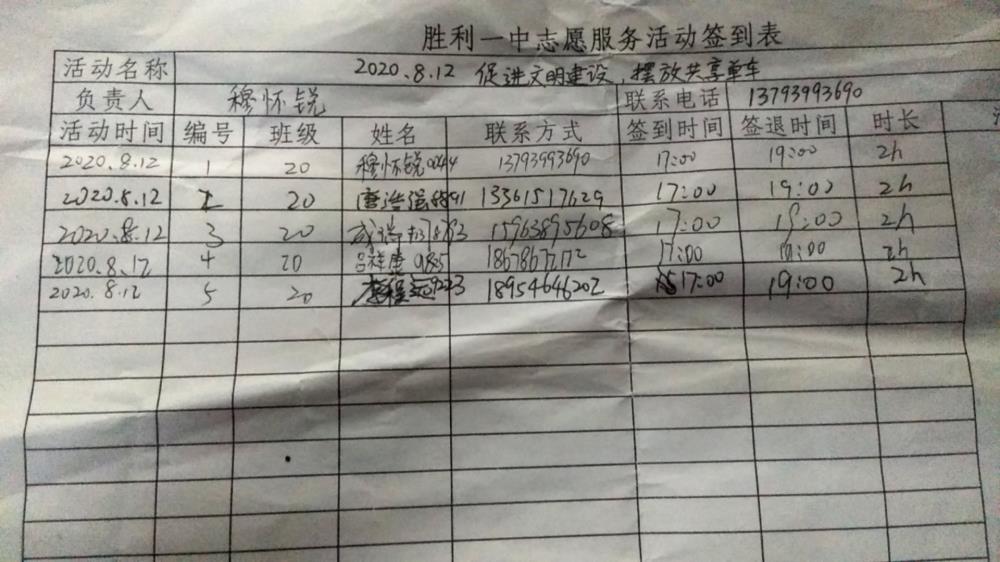 胜利一中志愿服务活动签到表
活动名称 2020.8.12 促进文明建设，摆放共享单车
负责人 穆怀锐 联系电话 13793993690
活动时间 编号 班级 姓名 联系方式 签到时间 签退时间 时长
2020.8.12 1 20 穆怀锐 13793993690 17:00 19:00 2h
2020.8.12 2 20 13361517629 17:00 19:00 2h
2020.8.12 3 20 15963895608 17:00 19:00 2h
2020.8.12 4 20 17:00 2h
2020.8.12 5 20 18954646202 17:00 19:00 2h